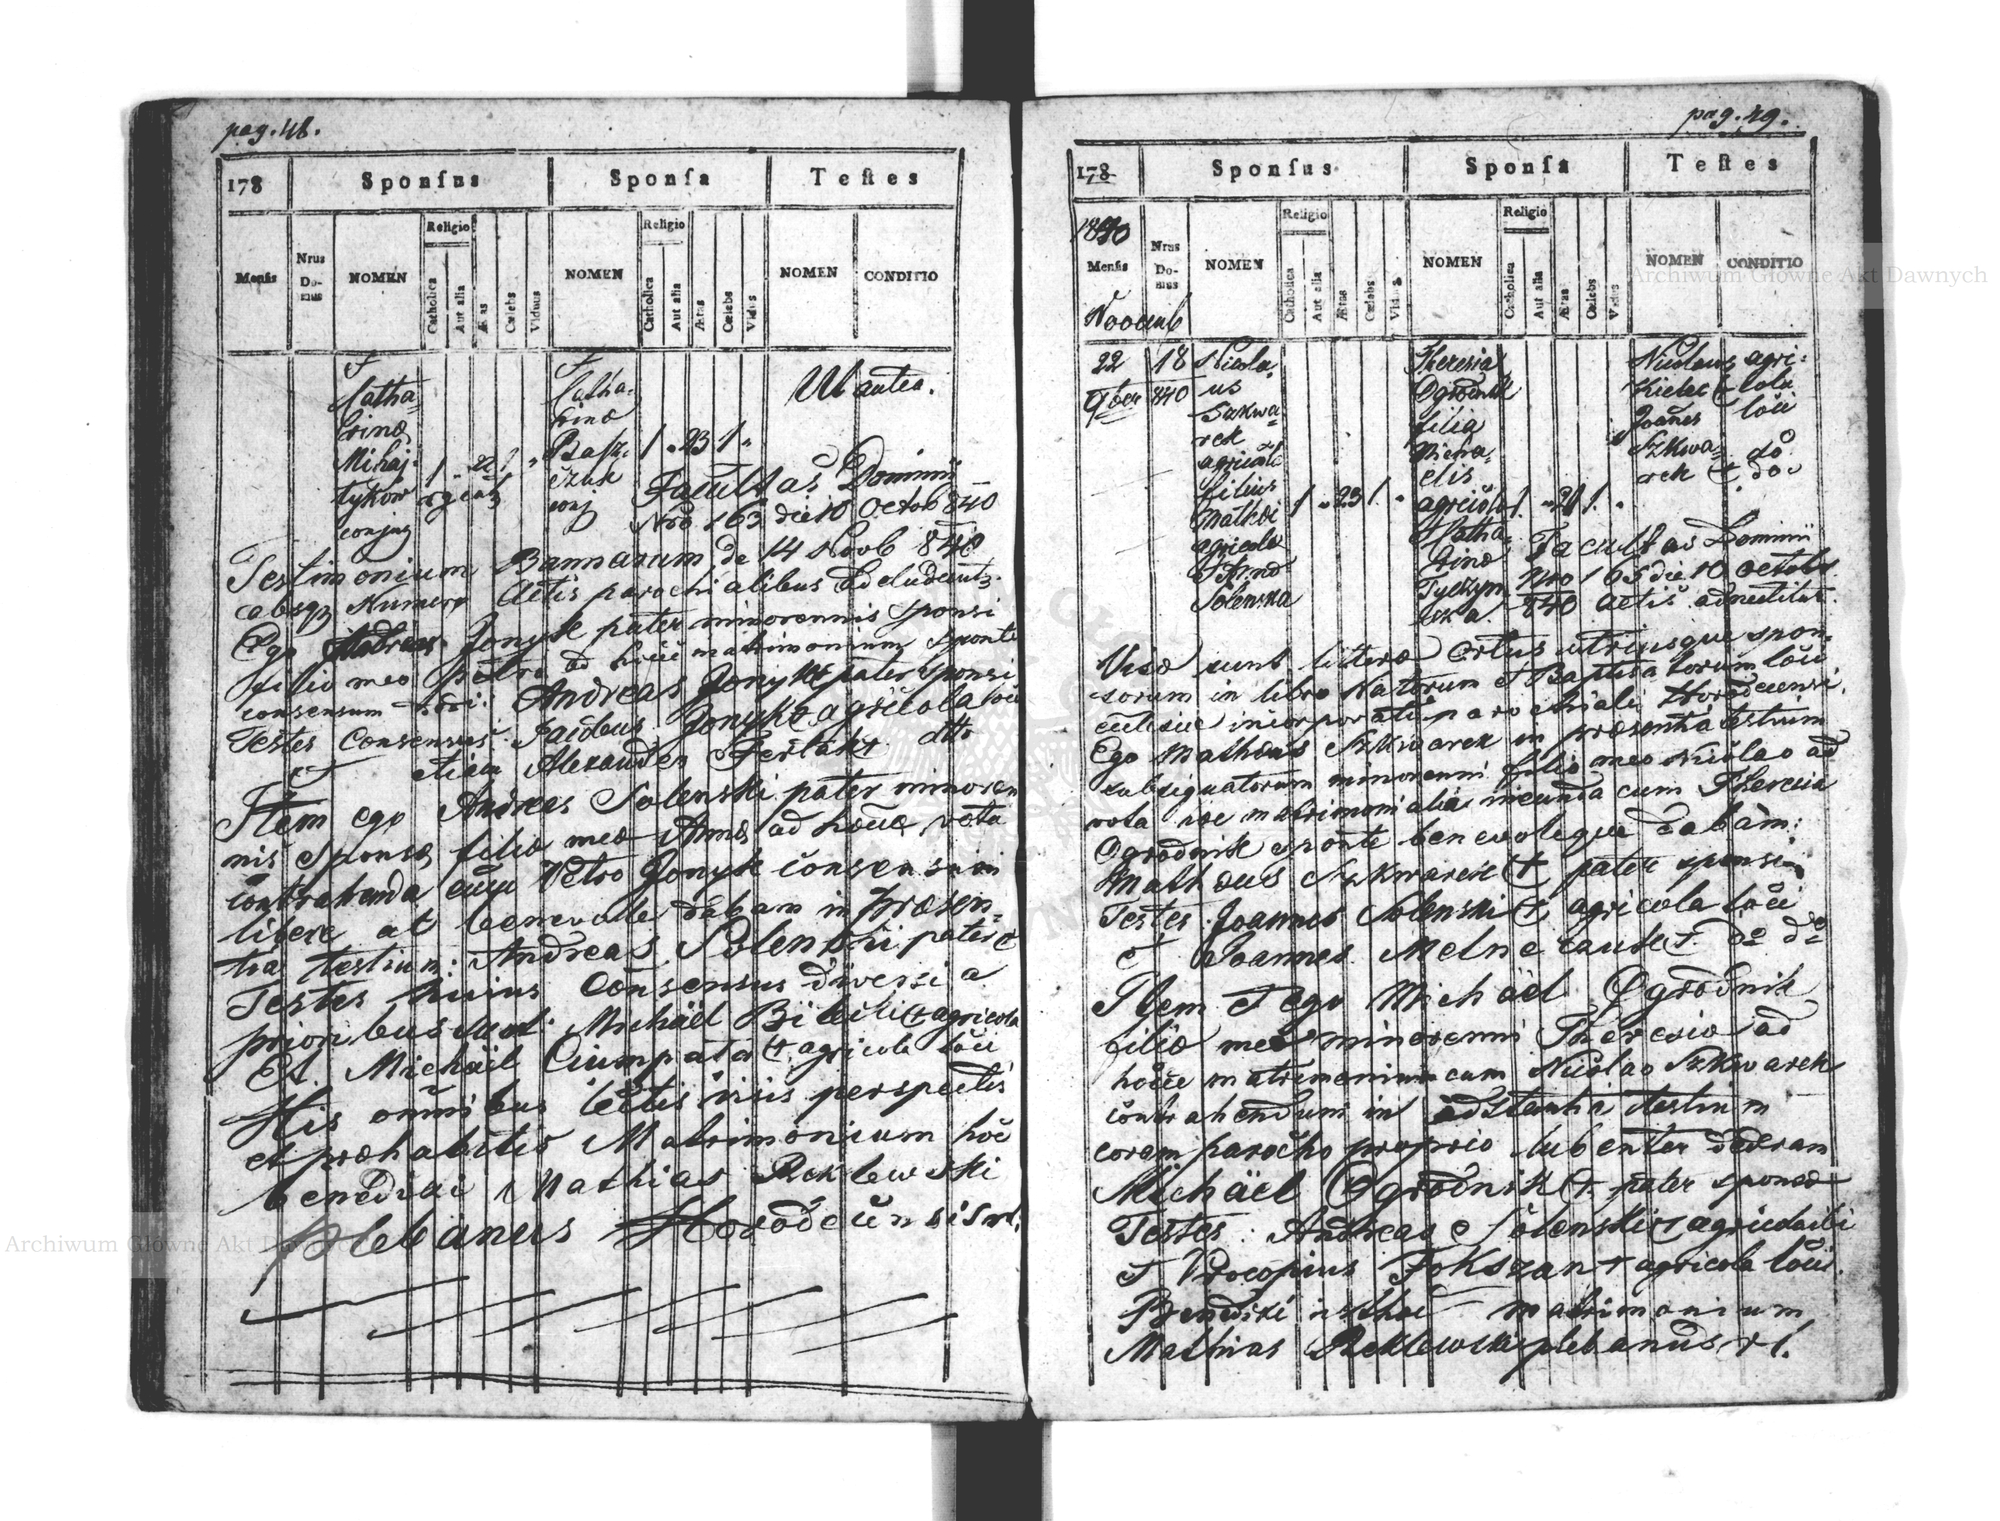 pag. 48.
178 Sponsus Sponsa Testes
Mensis Nrus Domus NOMEN Religio Catholica Aut alia Ætas Cælebs Viduus NOMEN Religio Catholica Aut alia Ætas Cælebs Vidua NOMEN CONDITIO
et
Catha-
rinæ
Mihaj-
tyków
conjug
1 " 22 1 "
et
Catha-
rinæ
Basz-
czuk
conj
1 " 23 1 "
Ut antea.
Facultas Dominii
Nro 163 die 10 Octob 840
Testimonium Bannarum de 14 Novb 840
absqz Numero Actis parochialibus
Ego Andreas Jonyk pater minorennis sponsi
filio meo Petro ad hocce matrimonium sponte
consensum dedi: Andreas Jonyk + pater sponsi
Testes Consensus: Jacobus Jonyk + agricola loci
et Alexander Ferlak + dtto
Item ego Andreas Solenski pater minoren
nis sponsæ filiæ meæ Annæ ad hocce vota
contrahenda cum Petro Jonyk consensum
libere at benevole dabam in Præsen-
tia testium: Andreas Solenski pater +
Testes hujus Consensus diversi a
prioribus sunt: Michäel + agricola
Et Michäel Ciumpata + agricola loci
His omnibus lectis visis perspectis
et præhabitis Matrimonium hoc
benedixi Mathias Reklewski
plebanus Horodecensis
pag. 49.
178 Sponsus Sponsa Testes
1840
Mensis Nrus Domus NOMEN Religio Catholica Aut alia Ætas Cælebs Viduus NOMEN Religio Catholica Aut alia Ætas Cælebs Vidua NOMEN CONDITIO
Novemb
22
9ber 840
18
Nicola-
us
Szkwa-
rek
agricola
filius
Mathæi
agricolæ
et Annæ
Solenska
1 " 23 1 "
Theresia
Ogrodnik
filia
Micha-
elis
agricolæ
et Catha-
rinæ
1 " 21 1 "
Nicolaus agri-
Kielec + cola
Joañes loci
Szkwa- do
rek + do
Facultas Dominii
Nro 163 die 10 Octobr
840 Actis adnectitur.
Visæ sunt litteræ Ortus utriusque spon-
sorum in libro Natorum et Baptisatorum loci
ecclesiæ incorporati parochiali Horodecensi.
Ego Mathæus Szkwarek in præsentia testium
subsignatorum minorenni filio meo Nicolao ad
vota hæc matrimonialia ineunda cum Theresia
Ogrodnik sponte benevoleque dabam:
Mathæus Szkwarek + pater sponsi
Testes Joannes Solenski + agricola loci
et Joannes Melneczuk +. do do
Item et ego Michäel Ogrodnik
filiæ meæ minorenni Theresiæ ad
hocce matrimonium cum Nicolao Szkwarek
contrahendum in adstantia testium
coram parocho proprio lubenter dederam
Michäel Ogrodnik + pater sponsæ
Testes: Andreas Solenski + agricola ibi
et Procopius Fokszan + agricola loci.
Benedixi isthoc matrimonium
Mathias Reklewski plebanus r. l.
Archiwum Główne Akt Dawnych
Archiwum Główne Akt Dawnych